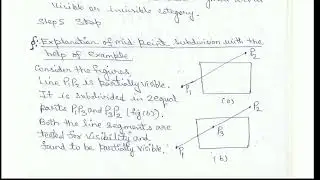 visible or invisible category.
Step5 Stop
Explanation of mid point subdivision with the
help of example
Consider the figures.
Line P1P2 is partially visible.
It is subdivided in 2 equal
parts PP3 and P3P2 (fig(b)).
Both the line segments are
tested for visibility and
found to be partially visible.
P2
P1
(a)
P2
P3
P1
(b)